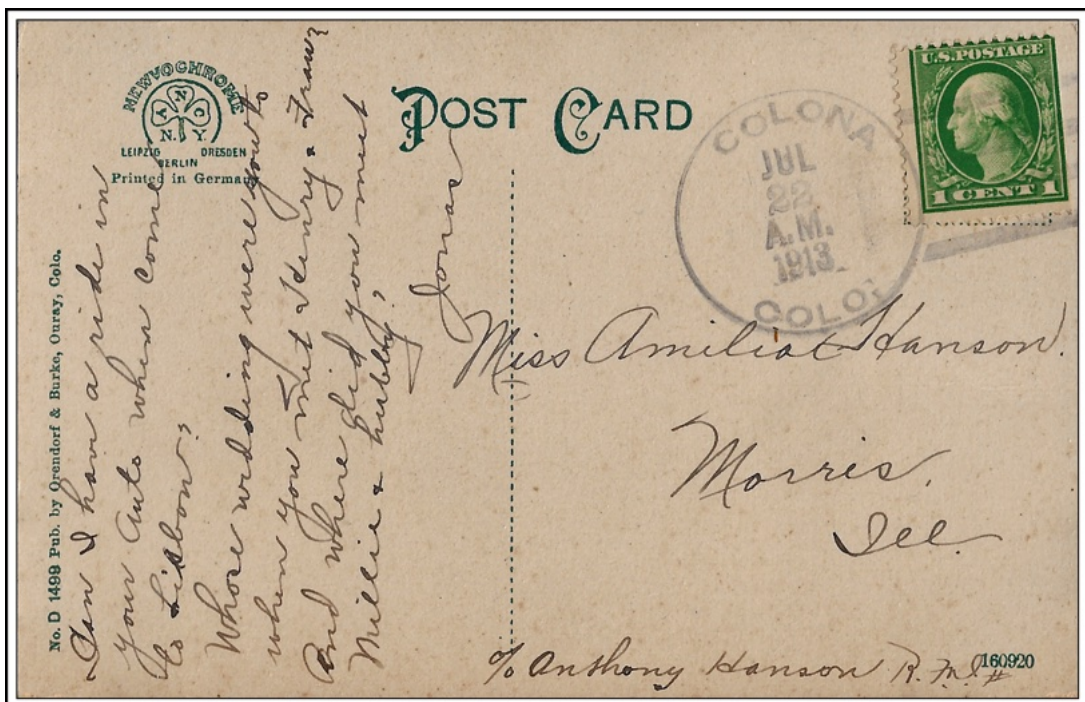 NEWVOCHROME
A N C
N. Y
LEIPZIG DRESDEN
BERLIN
Printed in Germany
POST CARD
COLONA
JUL
22
A.M.
1913
COLO.
U.S. POSTAGE
1 CENT 1
No. D 1499 Pub. by Orendorf & Burke, Ouray, Colo.
Can I have a ride in
your Auto when come
to Lisbon?
Whose wedding were you to
when you met Henry & Franz
And where did you meet
Millie & hubby?
Jonas
Miss Amilia Hanson.
Morris.
Ill.
c/o Anthony Hanson R.
160920